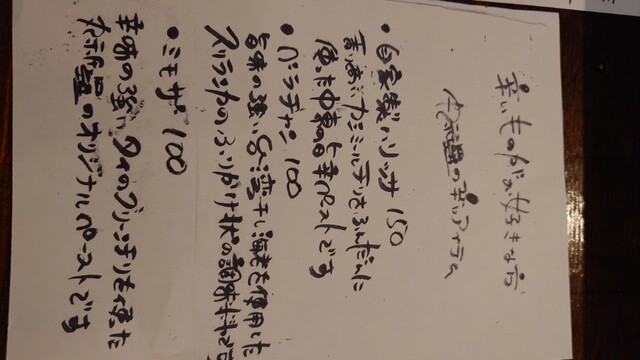 辛いものが好きな方
の辛いアイテム
● 自家製ハリッサ 150
カシミールチリをふんだんに
使った中東の旨辛ペーストです
● バラチャン 100
旨味の強い台湾干し海老を使用した
スリランカのふりかけ状の調味料です
● ミモザ 100
辛味の強いタイの を使った
のオリジナルペーストです